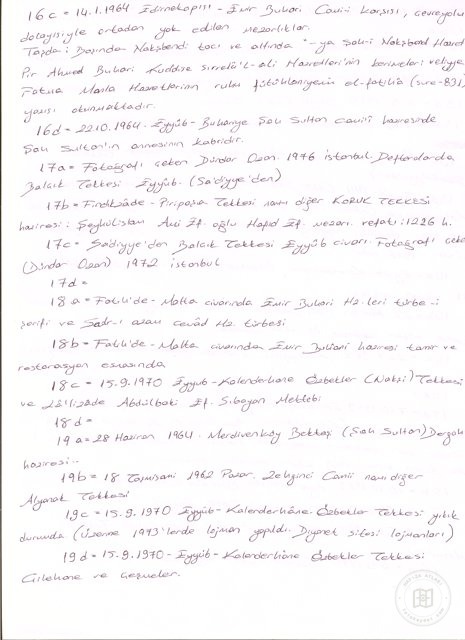 16c = 14.1.1964 Edirnekapısı - Emir Buhari Camii karşısı, çevreyolu
dolayısiyle ortadan yok edilen mezarlıklar.
Taşda: Başında Nakşibendi tacı ve altında "-ya Şah-ı Nakşibend Hazret
Pir Ahmed Buhari Kuddise sırruhu'l-ali Hazretleri'nin kerimeleri veliyye
Fatıma Molla Hazretlerinin ruhu için el-fatiha (sure-831)
yazısı okunmaktadır.
16d = 22.10.1964. Eyyûb - Buhariye Şah Sultan camii haziresinde
Şah Sultan'ın annesinin kabridir.
17a = Fotoğrafı çeken Dündar Ozan. 1976 istanbul. Defterdarda
Balçık Tekkesi Eyyûb. (Sa'diyye'den)
17b = Fındıkzâde - Piripaşa Tekkesi namı diğer KORUK TEKKESİ
haziresi: Şeyhülislam Avni Ef. oğlu Hafid Ef. mezarı. vefatı: 1226 h.
17c = Sa'diyye'den Balçık Tekkesi Eyyûb civarı Fotoğrafı çeken
(Dündar Ozan) 1972 istanbul
17d =
18a = Fatih'de - Malta civarında Emir Buhari Hz.leri türbe-i
şerifi ve Sadr-ı azam cevâd Hz. türbesi
18b = Fatih'de - Malta civarında Emir Buhari haziresi tamir ve
restorasyon esnasında
18c = 15.9.1970 Eyyub - Kalenderhane Özbekler (Nakşi) Tekkesi
ve Lâ'lizade Abdülbaki Ef. Sıbyan Mektebi
18d =
19a = 28 Haziran 1964. Merdivenköy Bektaşi (Şah Sultan) Dergah
haziresi..
19b = 18 1962 Pazar. Zehgirci Camii namı diğer
Alyanak Tekkesi
19c = 15.9.1970 Eyyûb - Kalenderhâne Özbekler Tekkesi yıkık
durumda (Üzerine 1973'lerde lojman yapıldı. Diyanet sitesi lojmanları)
19d = 15.9.1970 - Eyyûb - Kalenderhâne Özbekler Tekkesi
Çilehane ve çeşmeler.